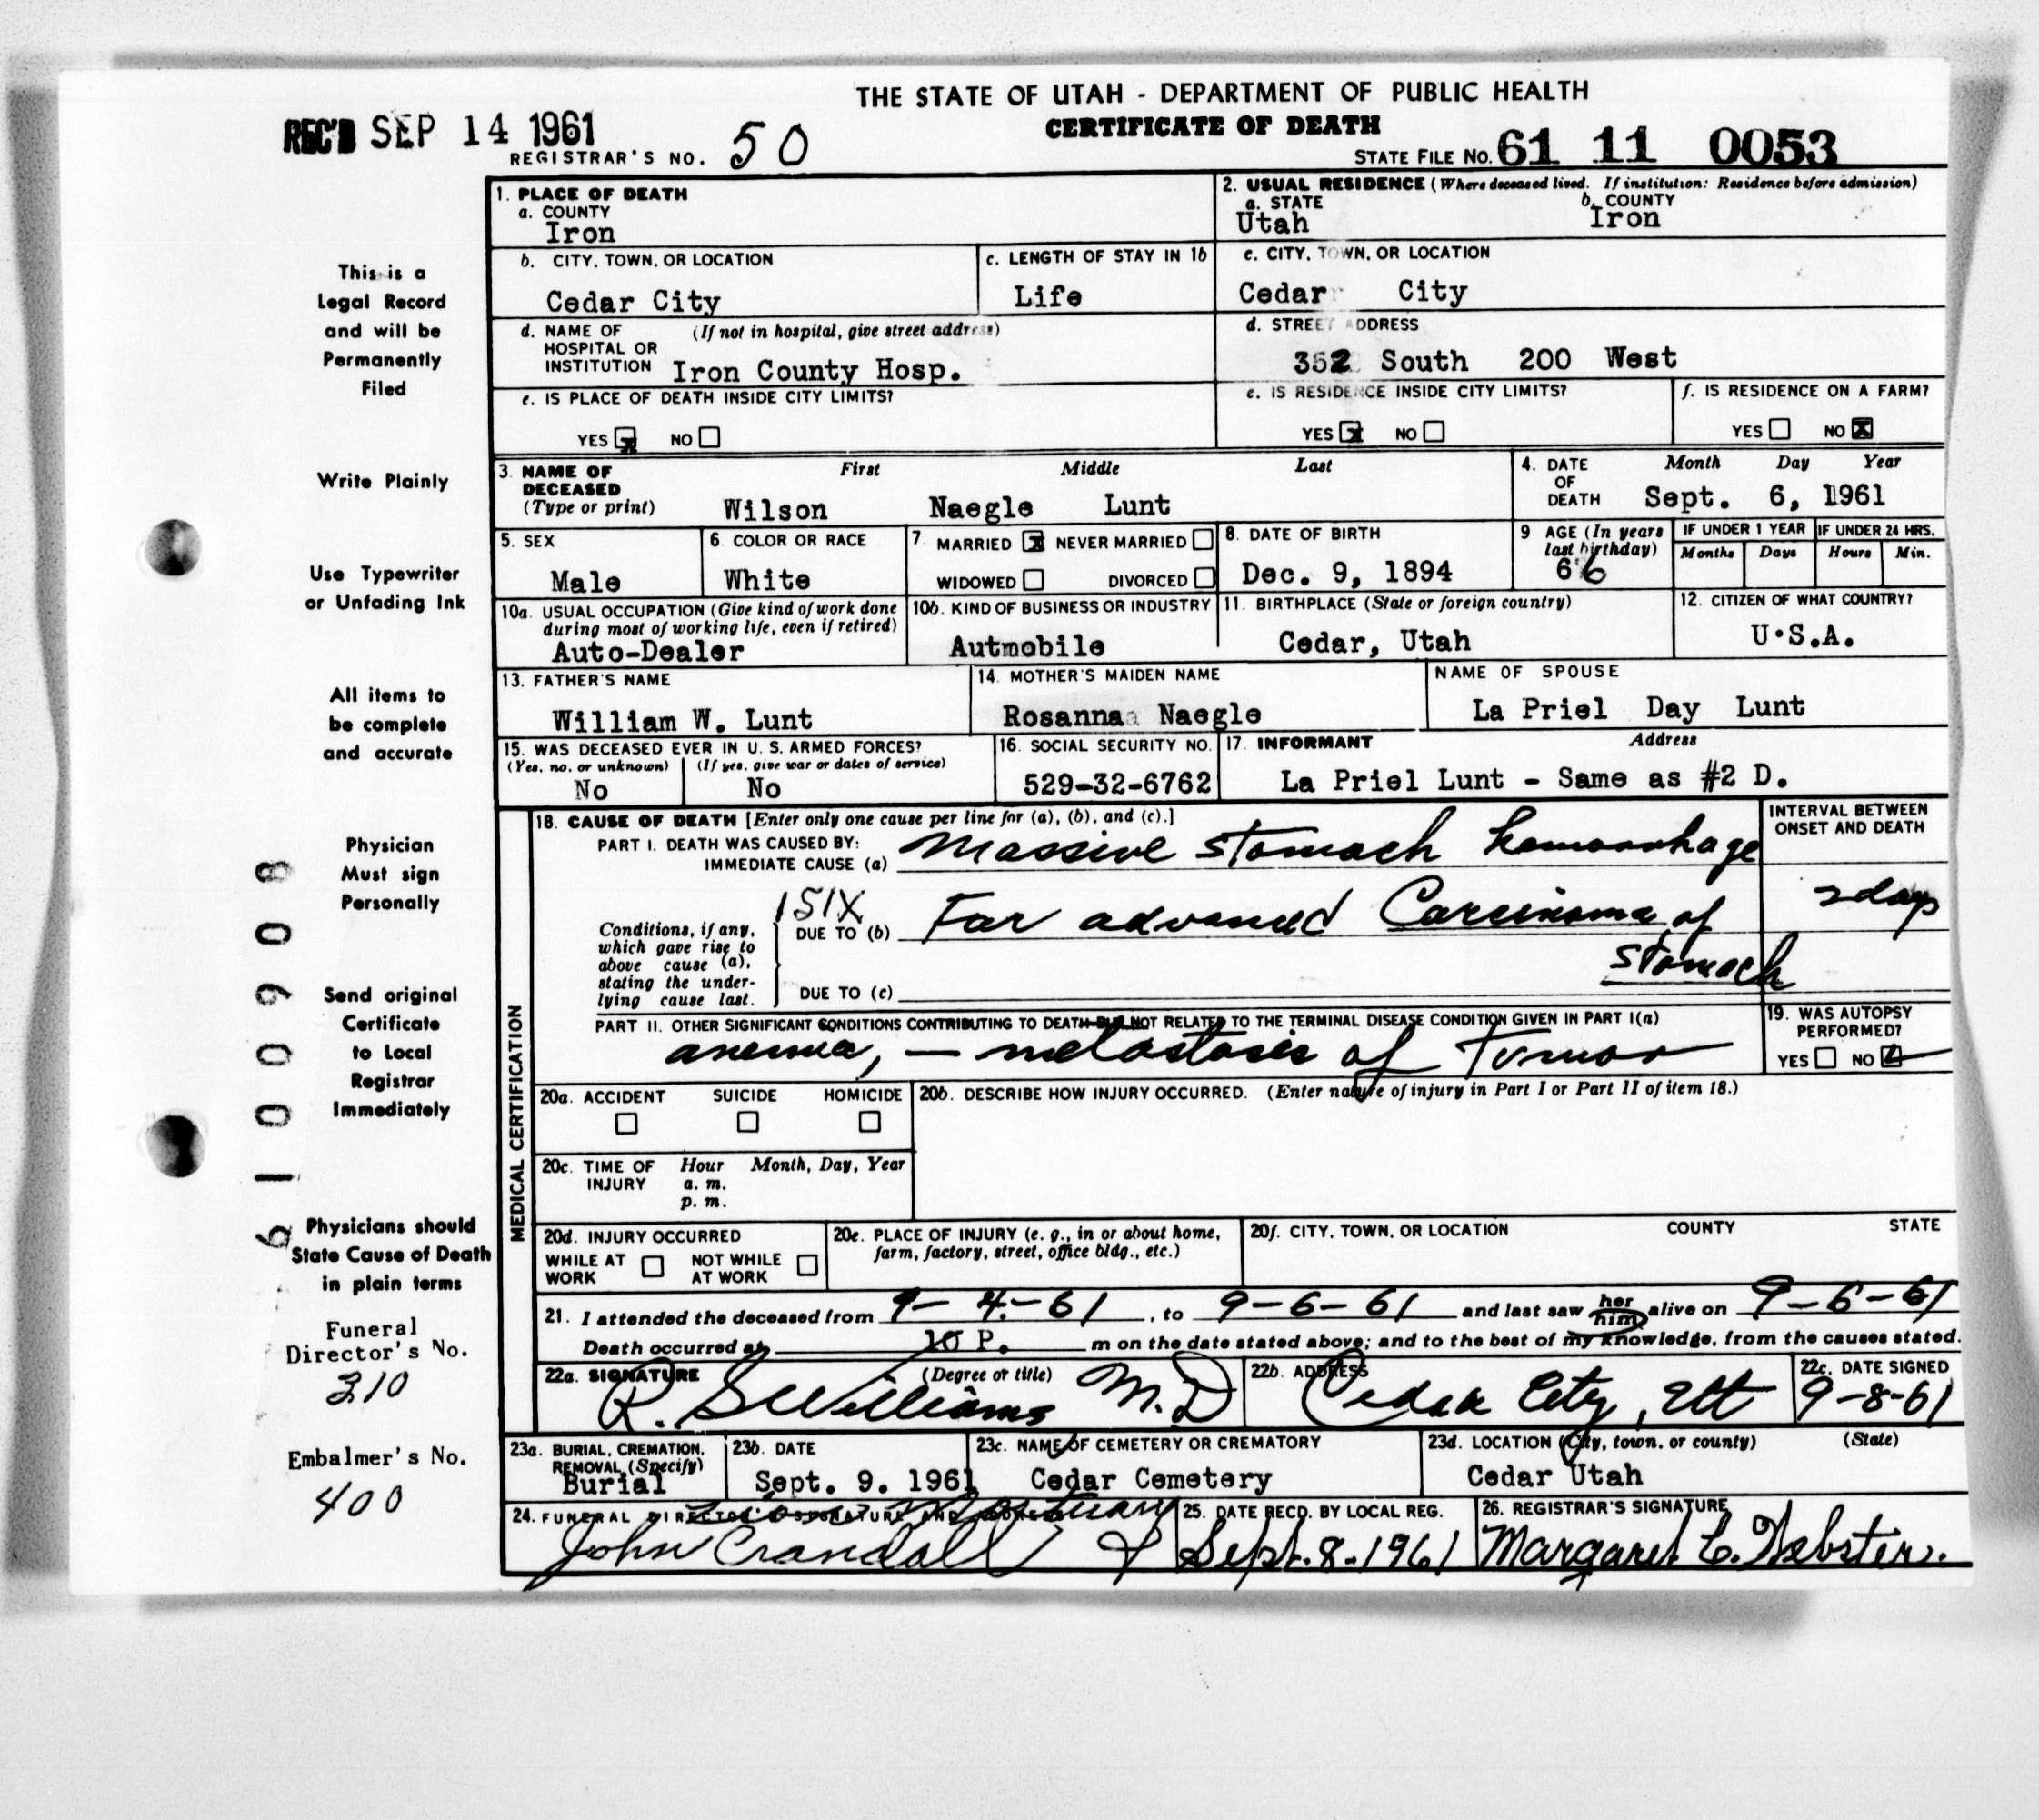 THE STATE OF UTAH - DEPARTMENT OF PUBLIC HEALTH
CERTIFICATE OF DEATH
REC'D SEP 14 1961
REGISTRAR'S NO. 50
STATE FILE NO. 61 11 0053
This is a
Legal Record
and will be
Permanently
Filed
Write Plainly
Use Typewriter
or Unfading Ink
All items to
be complete
and accurate
Physician
Must sign
Personally
Send original
Certificate
to Local
Registrar
Immediately
Physicians should
State Cause of Death
in plain terms
Funeral
Director's No.
310
Embalmer's No.
400
61 00908
1. PLACE OF DEATH
a. COUNTY
Iron
2. USUAL RESIDENCE (Where deceased lived. If institution: Residence before admission)
a. STATE b. COUNTY
Utah Iron
b. CITY, TOWN, OR LOCATION
Cedar City
c. LENGTH OF STAY IN 1b
Life
c. CITY, TOWN, OR LOCATION
Cedar City
d. NAME OF (If not in hospital, give street address)
HOSPITAL OR
INSTITUTION Iron County Hosp.
d. STREET ADDRESS
352 South 200 West
e. IS PLACE OF DEATH INSIDE CITY LIMITS?
YES x NO
e. IS RESIDENCE INSIDE CITY LIMITS?
YES x NO
f. IS RESIDENCE ON A FARM?
YES NO x
3. NAME OF First Middle Last
DECEASED
(Type or print) Wilson Naegle Lunt
4. DATE Month Day Year
OF
DEATH Sept. 6, 1961
5. SEX
Male
6. COLOR OR RACE
White
7. MARRIED x NEVER MARRIED
WIDOWED DIVORCED
8. DATE OF BIRTH
Dec. 9, 1894
9 AGE (In years
last birthday)
66
IF UNDER 1 YEAR IF UNDER 24 HRS.
Months Days Hours Min.
10a. USUAL OCCUPATION (Give kind of work done
during most of working life, even if retired)
Auto-Dealer
10b. KIND OF BUSINESS OR INDUSTRY
Autmobile
11. BIRTHPLACE (State or foreign country)
Cedar, Utah
12. CITIZEN OF WHAT COUNTRY?
U.S.A.
13. FATHER'S NAME
William W. Lunt
14. MOTHER'S MAIDEN NAME
Rosanna Naegle
NAME OF SPOUSE
La Priel Day Lunt
15. WAS DECEASED EVER IN U. S. ARMED FORCES?
(Yes, no, or unknown) (If yes, give war or dates of service)
No No
16. SOCIAL SECURITY NO.
529-32-6762
17. INFORMANT Address
La Priel Lunt - Same as #2 D.
MEDICAL CERTIFICATION
18. CAUSE OF DEATH [Enter only one cause per line for (a), (b), and (c).]
INTERVAL BETWEEN
ONSET AND DEATH
PART I. DEATH WAS CAUSED BY:
IMMEDIATE CAUSE (a) Massive stomach hemorrhage
2 days
151X
Conditions, if any,
which gave rise to
above cause (a),
stating the under-
lying cause last.
DUE TO (b) Far advanced Carcinoma of
stomach
DUE TO (c)
PART II. OTHER SIGNIFICANT CONDITIONS CONTRIBUTING TO DEATH BUT NOT RELATED TO THE TERMINAL DISEASE CONDITION GIVEN IN PART I(a)
anemia, — metastasis of tumor
19. WAS AUTOPSY
PERFORMED?
YES NO
20a. ACCIDENT SUICIDE HOMICIDE
20b. DESCRIBE HOW INJURY OCCURRED. (Enter nature of injury in Part I or Part II of item 18.)
20c. TIME OF Hour Month, Day, Year
INJURY a. m.
p. m.
20d. INJURY OCCURRED
WHILE AT NOT WHILE
WORK AT WORK
20e. PLACE OF INJURY (e. g., in or about home,
farm, factory, street, office bldg., etc.)
20f. CITY, TOWN, OR LOCATION COUNTY STATE
21. I attended the deceased from 9-4-61, to 9-6-61 and last saw her him alive on 9-6-61
Death occurred at 10 P. m on the date stated above; and to the best of my knowledge, from the causes stated.
22a. SIGNATURE (Degree or title)
R. S Williams M.D
22b. ADDRESS
Cedar City, Ut
22c. DATE SIGNED
9-8-61
23a. BURIAL, CREMATION,
REMOVAL (Specify)
Burial
23b. DATE
Sept. 9. 1961
23c. NAME OF CEMETERY OR CREMATORY
Cedar Cemetery
23d. LOCATION (City, town, or county) (State)
Cedar Utah
24. FUNERAL DIRECTOR'S SIGNATURE AND ADDRESS
Mortuary
John Crandall
25. DATE RECD. BY LOCAL REG.
Sept. 8-1961
26. REGISTRAR'S SIGNATURE
Margaret C. Webster.